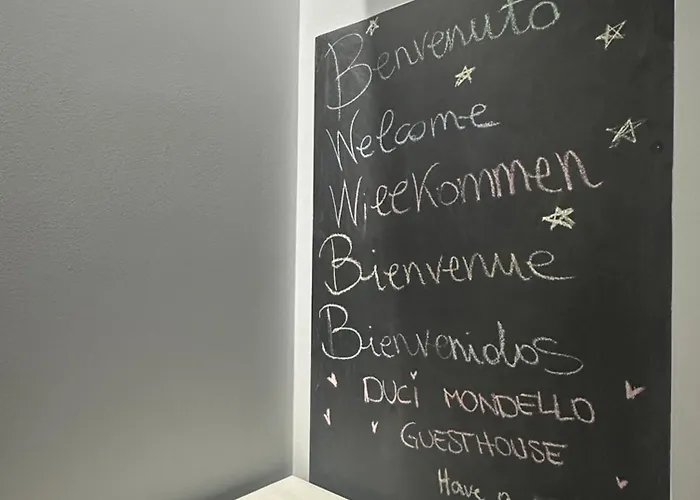 Benvenuto
Welcome
Willkommen
Bienvenue
Bienvenidos
DUCI MONDELLO
GUESTHOUSE
Have